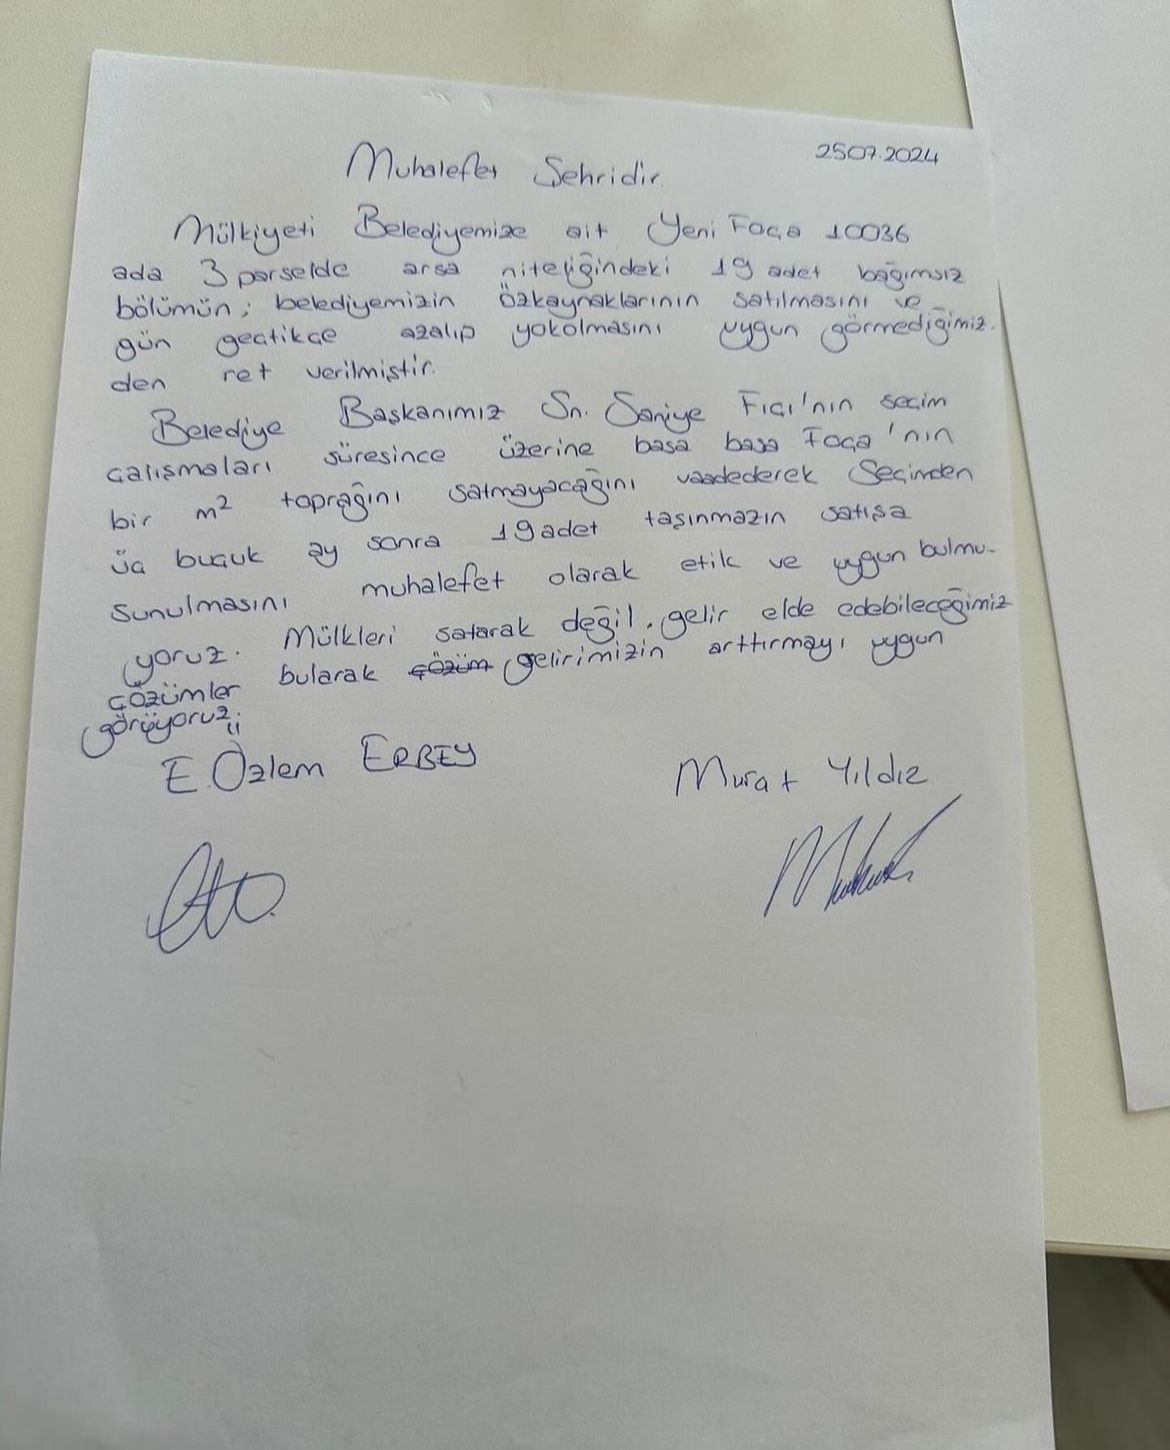 25.07.2024
Muhalefet Şehridir.
Mülkiyeti Belediyemize ait Yeni Foça 10036
ada 3 parselde arsa niteliğindeki 19 adet bağımsız
bölümün; belediyemizin özkaynaklarının satılmasını ve
gün geçtikçe azalıp yokolmasını uygun görmediğimiz-
den ret verilmiştir.
Belediye Başkanımız Sn. Saniye Fıçı'nın seçim
çalışmaları süresince üzerine basa basa Foça'nın
bir m² toprağını satmayacağını vaadederek Seçimden
üç buçuk ay sonra 19 adet taşınmazın satışa
sunulmasını muhalefet olarak etik ve uygun bulmu-
yoruz. Mülkleri satarak değil, gelir elde edebileceğimiz
çözümler bularak çözüm gelirimizin arttırmayı uygun
görüyoruz.
E. Özlem ERBEY
Murat Yıldız